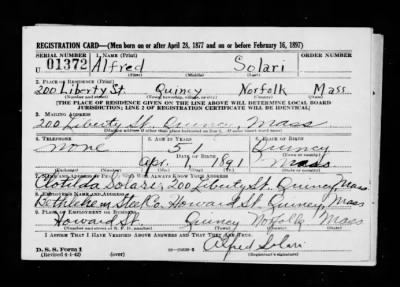 REGISTRATION CARD—(Men born on or after April 28, 1877 and on or before February 16, 1897)
SERIAL NUMBER 1. NAME (Print) ORDER NUMBER
U 01372 Alfred Solari
(First) (Middle) (Last)
2. PLACE OF RESIDENCE (Print)
200 Liberty St. Quincy Norfolk Mass.
(Number and street) (Town, township, village, or city) (County) (State)
[THE PLACE OF RESIDENCE GIVEN ON THE LINE ABOVE WILL DETERMINE LOCAL BOARD
JURISDICTION; LINE 2 OF REGISTRATION CERTIFICATE WILL BE IDENTICAL]
3. MAILING ADDRESS
200 Liberty St. Quincy Mass
[Mailing address if other than place indicated on line 2. If same insert word same]
4. TELEPHONE 5. AGE IN YEARS 6. PLACE OF BIRTH
none 51 Quincy
DATE OF BIRTH (Town or county)
Apr. 1 1891 Mass
7. NAME AND ADDRESS OF PERSON WHO WILL ALWAYS KNOW YOUR ADDRESS
Clotilda Solari, 200 Liberty St. Quincy Mass
8. EMPLOYER'S NAME AND ADDRESS
Bethlehem Steel Co. Howard St. Quincy, Mass
9. PLACE OF EMPLOYMENT OR BUSINESS
Howard St. Quincy Norfolk Mass
(Number and street or R. F. D. number) (Town) (County) (State)
I AFFIRM THAT I HAVE VERIFIED ABOVE ANSWERS AND THAT THEY ARE TRUE.
Alfred Solari
D. S. S. Form 1
(Revised 4-1-42) (over) (Registrant's signature)